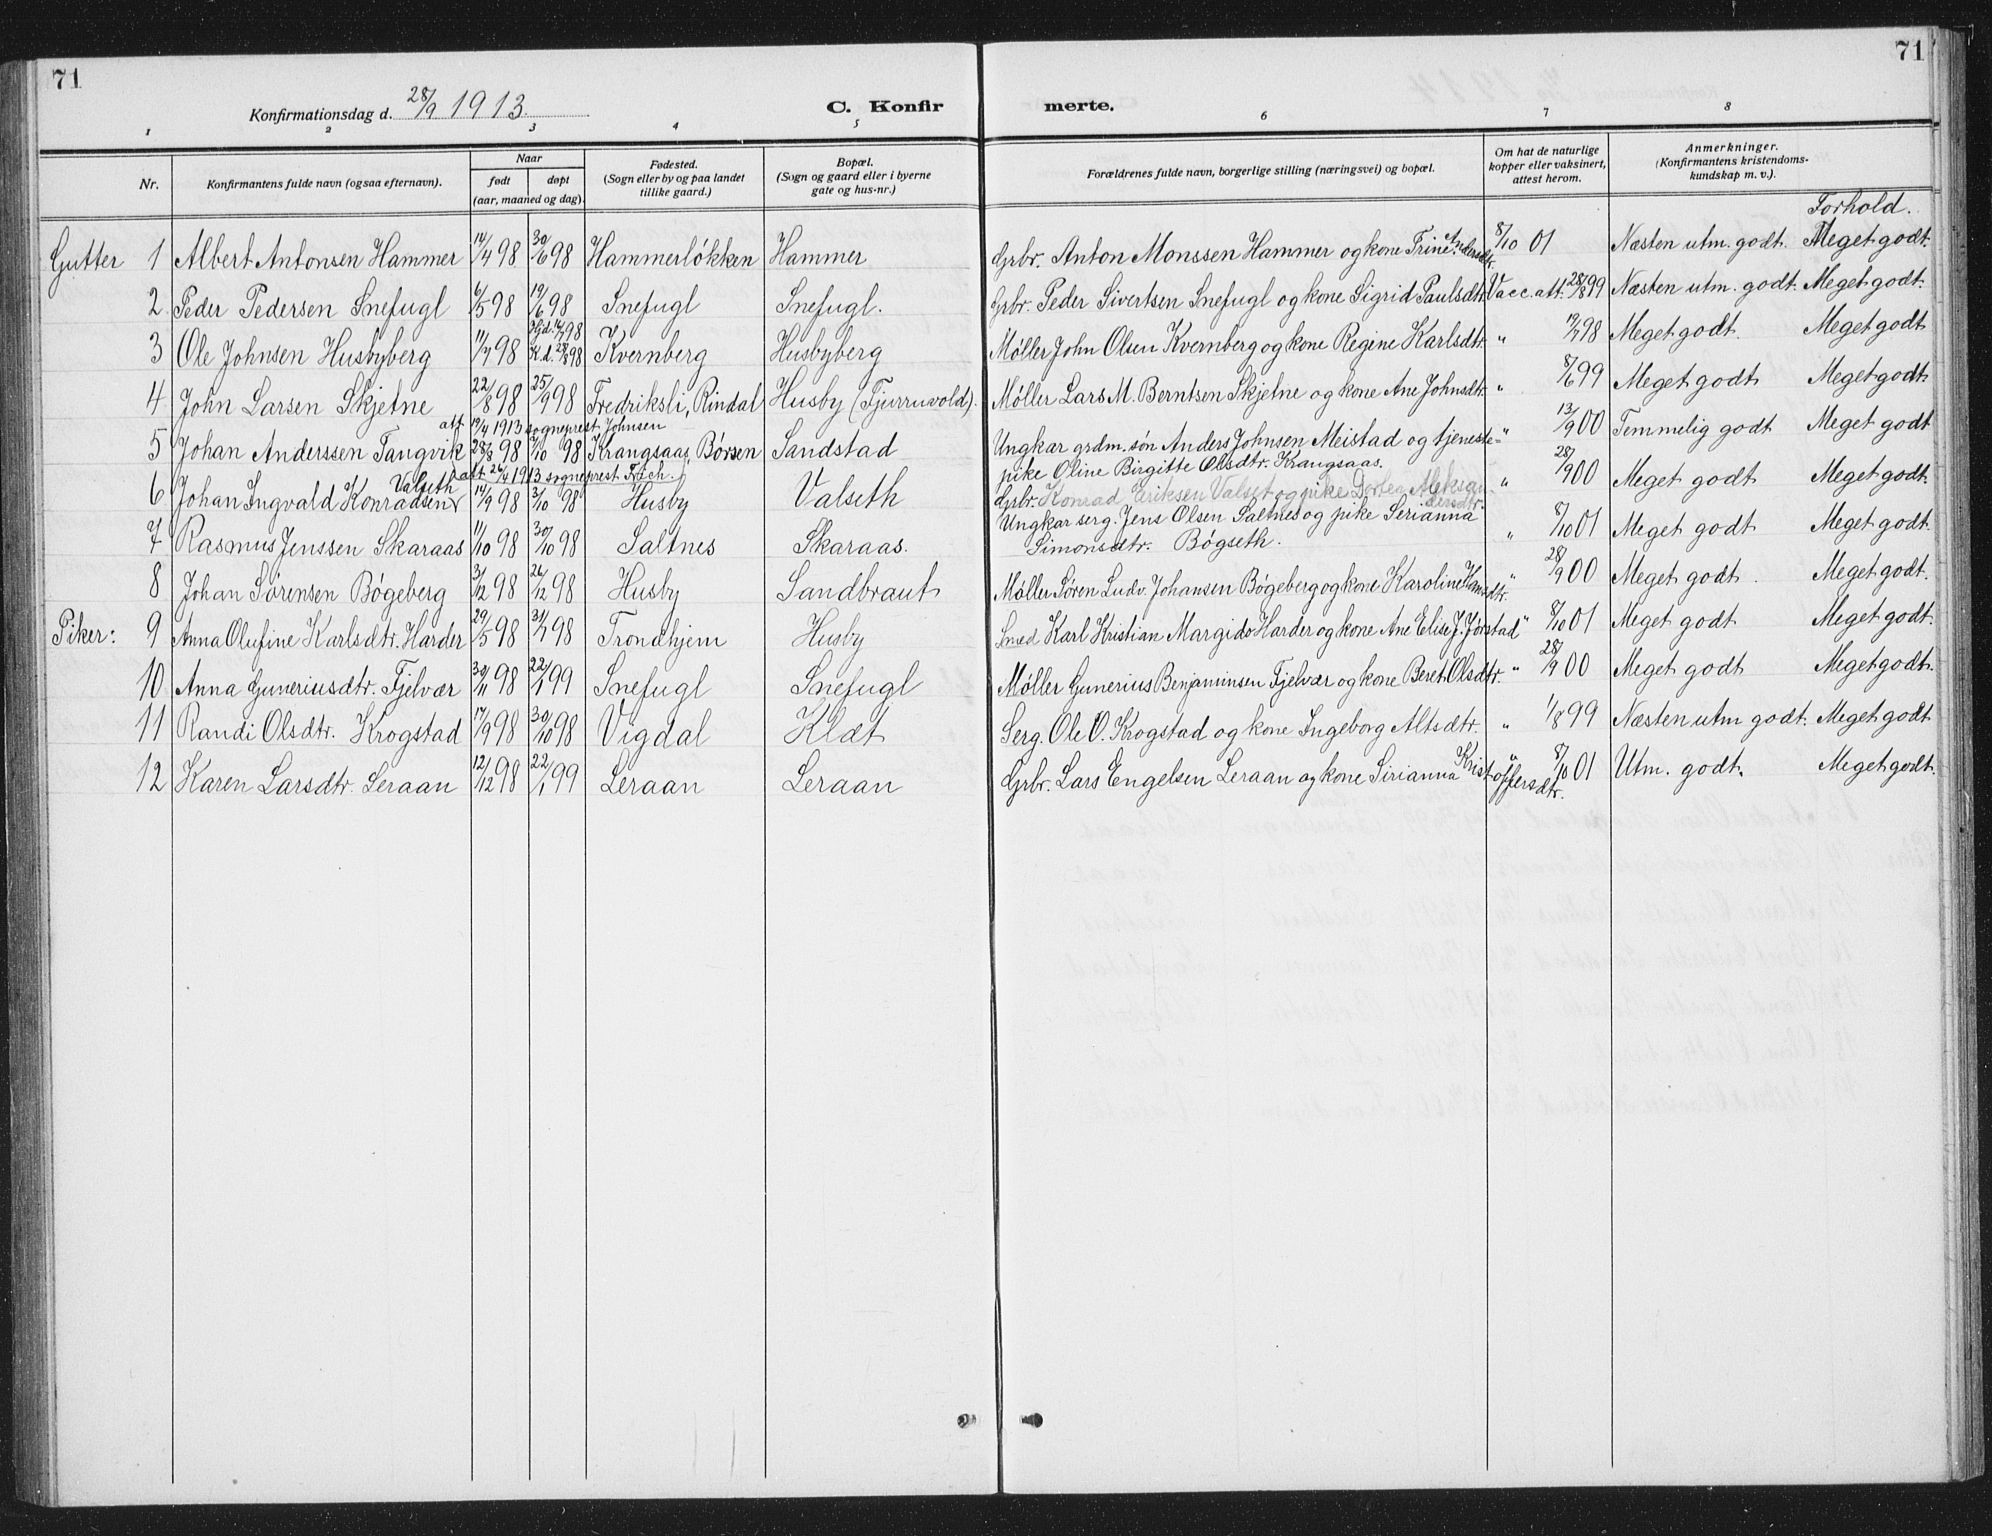 71
71
Konfirmationsdag d. 28/9 1913.
C. Konfirmerte.
1 2 3 4 5 6 7 8
Nr.
Konfirmantens fulde navn (ogsaa efternavn).
Naar
født
døpt
(aar, maaned og dag).
Fødested.
(Sogn eller by og paa landet
tillike gaard.)
Bopæl.
(Sogn og gaard eller i byerne
gate og hus-nr.)
Forældrenes fulde navn, borgerlige stilling (næringsvei) og bopæl.
Om hat de naturlige
kopper eller vaksinert,
attest herom.
Anmerkninger.
(Konfirmantens kristendoms-
kundskap m. v.).
Forhold.
Gutter 1 Albert Antonsen Hammer 14/4 98 30/6 98 Hammerløkken Hammer Grbr. Anton Monssen Hammer og kone Trine Andersdtr. 8/10 01 Næsten utm. godt. Meget godt.
2 Peder Pedersen Snefugl 6/5 98 19/6 98 Snefugl Snefugl. Grbr. Peder Sivertsen Snefugl og kone Sigrid Paulsdtr. Vacc. att. 28/8 99 Næsten utm. godt. Meget godt.
3 Ole Johnsen Husbyberg 11/7 98 Hjd. 14/7 98 K. d. 28/8 98 Kvernberg Husbyberg Møller John Olsen Kvernberg og kone Regine Karlsdtr. " 19/7 98 Meget godt. Meget godt
4 John Larsen Skjetne 22/8 98 25/9 98 Fredriksli, Rindal Husby (Tjurruvold). Møller Lars M. Berntsen Skjetne og kone Ane Johnsdtr. " 8/6 99 Meget godt Meget godt.
att 19/4 1913 sogneprest Johnsen
5 Johan Anderssen Tangvik 28/8 98 7/10 98 Krangsaas, Børsen Sandstad Ungkar grdm. søn Anders Johnsen Meistad og tjeneste-
pike Oline Birgitte Olsdtr. Krangsaas. " 13/9 00 Temmelig godt Meget godt
att 26/4 1913 sogneprest
6 Johan Ingvald Konradsen Valseth 14/9 98 3/10 98 Husby Valseth Grbr. Konrad Eriksen Valset og pike Dortea Aleksan-
dersdtr. " 28/9 00 Meget godt Meget godt.
7 Rasmus Jenssen Skaraas 11/10 98 30/10 98 Saltnes Skaraas. Ungkar serg. Jens Olsen Saltnes og pike Serianna
Simonsdtr. Bøgseth. " 8/10 01 Meget godt Meget godt.
8 Johan Sørensen Bøgeberg 3/12 98 26/12 98 Husby Sandbraut Møller Søren Ludv. Johansen Bøgeberg og kone Karoline Hansdtr. " 28/9 00 Meget godt. Meget godt.
Piker: 9 Anna Olufine Karlsdtr. Harder 29/5 98 31/7 98 Trondhjem Husby Smed Karl Kristian Margido Harder og kone Ane Elise J. Jørstad " 8/10 01 Meget godt Meget godt.
10 Anna Guneriusdtr. Fjelvær 30/11 98 22/1 99 Snefugl Snefugl Møller Gunerius Benjaminsen Fjelvær og kone Beret Olsdtr. " 28/9 00 Meget godt Meget godt.
11 Randi Olsdtr. Krogstad 17/9 98 30/10 98 Vigdal Klæt Serg. Ole O. Krogstad og kone Ingeborg Altsdtr. " 1/8 99 Næsten utm godt. Meget godt
12 Karen Larsdtr. Leraan 12/12 98 22/1 99 Leraan Leraan Grbr. Lars Engelsen Leraan og kone Sirianna Kristoffersdtr. " 8/10 01 Utm. godt. Meget godt.